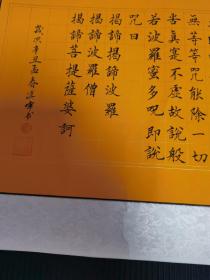 無等等咒能除一切
苦真實不虛故說般
若波羅蜜多咒即說
咒曰
揭諦揭諦波羅
揭諦波羅僧
揭諦菩提薩婆訶
歲次辛丑孟春